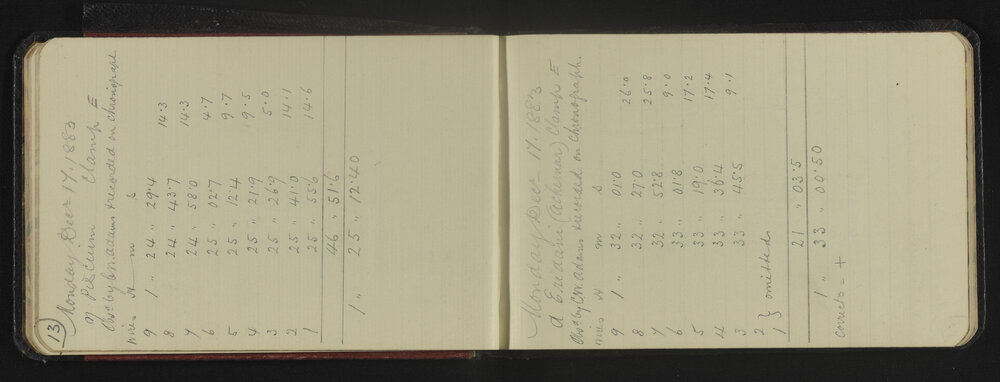 13
Monday. Decr 17. 1883
η Piscium Clamp E
Obsd by C.W. Adams & recorded on Chronograph
wires H m s
9 1 " 24 " 29.4 14.3
8 24 " 43.7 14.3
7 24 " 58.0 4.7
6 25 " 02.7 9.7
5 25 " 12.4 9.5
4 25 " 21.9 5.0
3 25 " 26.9 14.1
2 25 " 41.0 14.6
1 25 " 55.6
46 " 51.6
1 " 25 " 12.40
Monday Decr 17. 1883
α Eridani (Achernar) Clamp E
Obsd by C.W. Adams & recorded on Chronograph.
wires H m s
9 1 " 32 " 01.0 26.0
8 32 " 27.0 25.8
7 32 " 52.8 9.0
6 33 " 01.8 17.2
5 33 " 19.0 17.4
4 33 " 36.4 9.1
3 33 " 45.5
2 } omitted
1
21 " 03.5
1 " 33 " 00.50
corrects = +